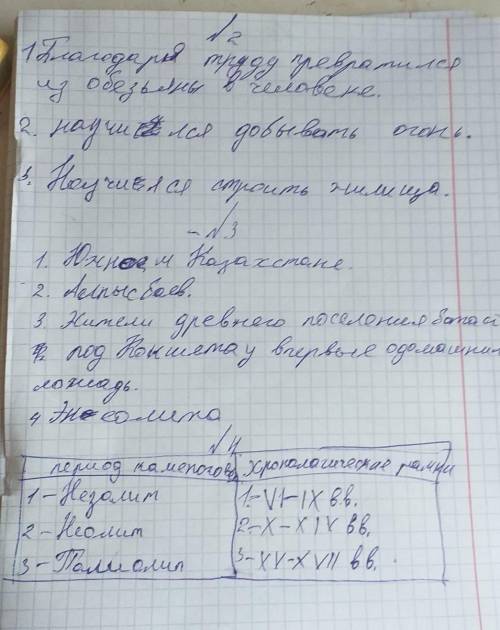 №2
1 Благодаря труду превратился
из обезьяны в человеке.
2. научился добывать огонь.
3. Научился строить жилища.
- №3
1. Южном Казахстане.
2. Алпысбаев.
3. Жители древнего поселения
под Кокшетау впервые одомашнил
лошадь.
4 Энеолита
№4
период каменого хронологические рамки
1 - Мезолит 1. - VI - IX в.в.
2 - Неолит 2 - X - XIV вв.
3 - Палиолит 3 - XV - XVII в в.